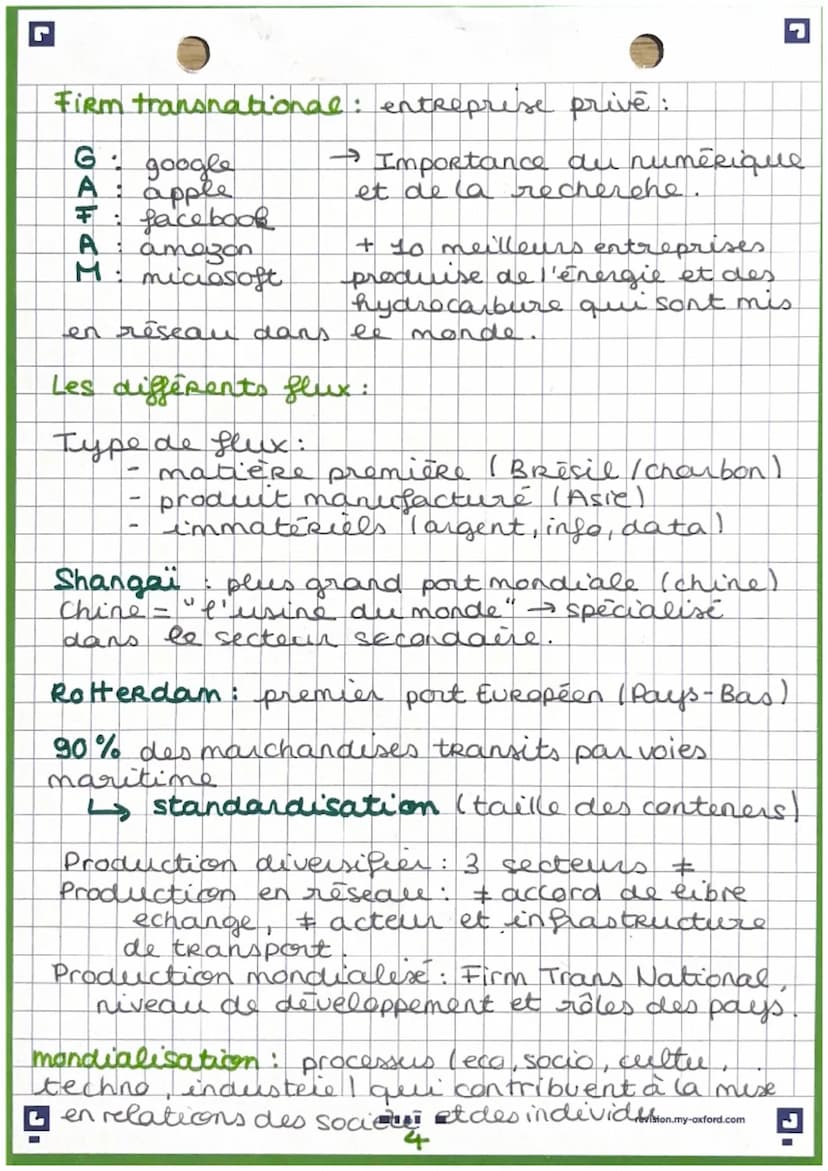 Firm transnational : entreprise privé :
G : google → Importance du numérique
A : apple et de la recherche.
F : facebook
A : amazon + 10 meilleurs entreprises
M : microsoft produise de l'énergie et des
hydrocarbure qui sont mis
en réseau dans le monde.
Les différents flux :
Type de flux :
- matière première (Brésil/charbon)
- produit manufacturé (Asie)
- immatériels (argent, info, data)
Shangaï : plus grand port mondiale (chine)
Chine = "l'usine du monde" → spécialisé
dans le secteur secondaire.
Rotterdam : premier port Européen (Pays-Bas)
90% des marchandises transits par voies
maritime
↳ standardisation (taille des conteners)
Production diversifier : 3 secteurs ≠
Production en réseau : ≠ accord de libre
echange, ≠ acteur et infrastructure
de transport.
Production mondialisé : Firm Trans National,
niveau de développement et rôles des pays.
mondialisation : processus (eco, socio, cultu,
techno, industriel) qui contribuent à la mise
en relations des societé et des individu
revision.my-oxford.com
4